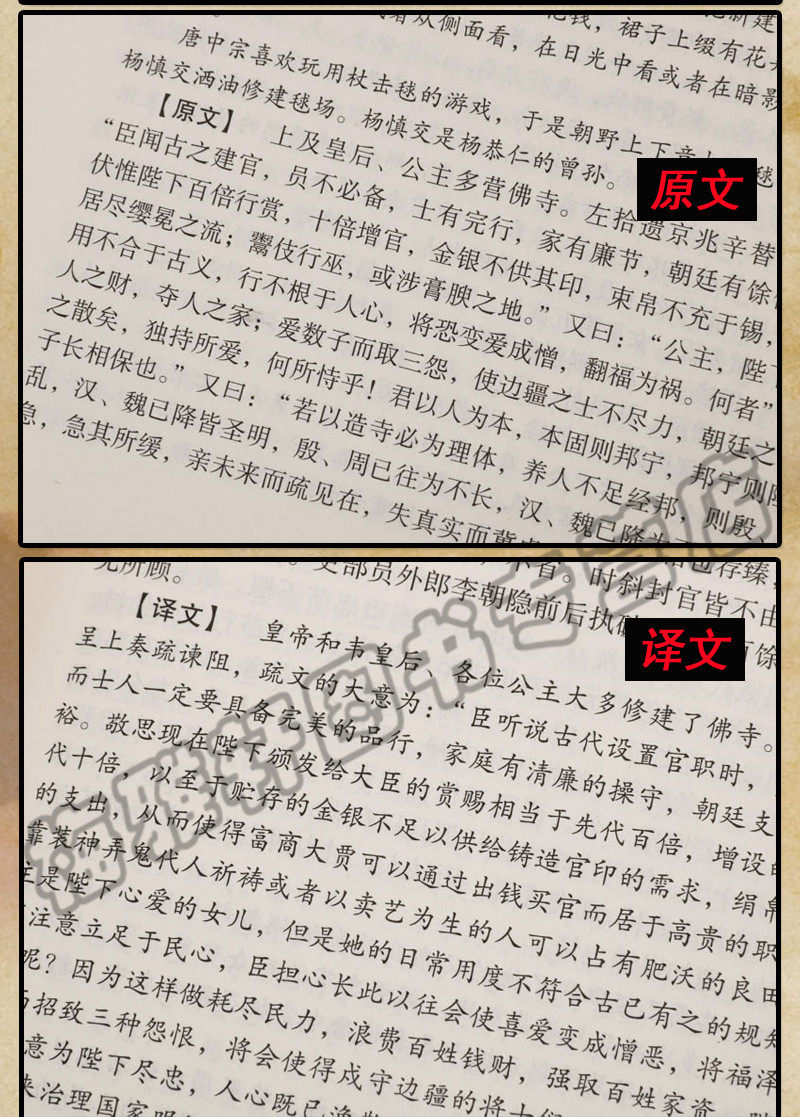 花钱，裙子上缀有花
众侧面看，在日光中看或者在暗影
唐中宗喜欢玩用杖击毬的游戏，于是朝野上下
毬
杨慎交洒油修建毬场。杨慎交是杨恭仁的曾孙。
【原文】 上及皇后、公主多营佛寺。左拾遗京兆辛替
“臣闻古之建官，员不必备，士有完行，家有廉节，朝廷有馀
伏惟陛下百倍行赏，十倍增官，金银不供其印，束帛不充于锡，
居尽缨冕之流；鬻伎行巫，或涉膏腴之地。”又曰：“公主，陛下
用不合于古义，行不根于人心，将恐变爱成憎，翻福为祸。何者”
人之财，夺人之家；爱数子而取三怨，使边疆之士不尽力，朝廷之
之散矣，独持所爱，何所恃乎！君以人为本，本固则邦宁，邦宁则陛
子长相保也。”又曰：“若以造寺必为理体，养人不足经邦，则殷
乱，汉、魏已降皆圣明，殷、周已往为不长，汉、魏已降为
急，急其所缓，亲未来而疏见在，失真实而冀
原文
无所顾。
不省。时斜封官皆不由
吏部员外郎李朝隐前后执破
【译文】 皇帝和韦皇后、各位公主大多修建了佛寺。
呈上奏疏谏阻，疏文的大意为：“臣听说古代设置官职时，
而士人一定要具备完美的品行，家庭有清廉的操守，朝廷支
裕。敬思现在陛下颁发给大臣的赏赐相当于先代百倍，增设的
代十倍，以至于贮存的金银不足以供给铸造官印的需求，绢帛
的支出，从而使得富商大贾可以通过出钱买官而居于高贵的职
靠装神弄鬼代人祈祷或者以卖艺为生的人可以占有肥沃的良田
主是陛下心爱的女儿，但是她的日常用度不符合古已有之的规
注意立足于民心，臣担心长此以往会使喜爱变成憎恶，将福泽
呢？因为这样做耗尽民力，浪费百姓钱财，强取百姓家资
而招致三种怨恨，将会使得戍守边疆的将士
意为陛下尽忠，人心既已涣散
来治理国家
译文